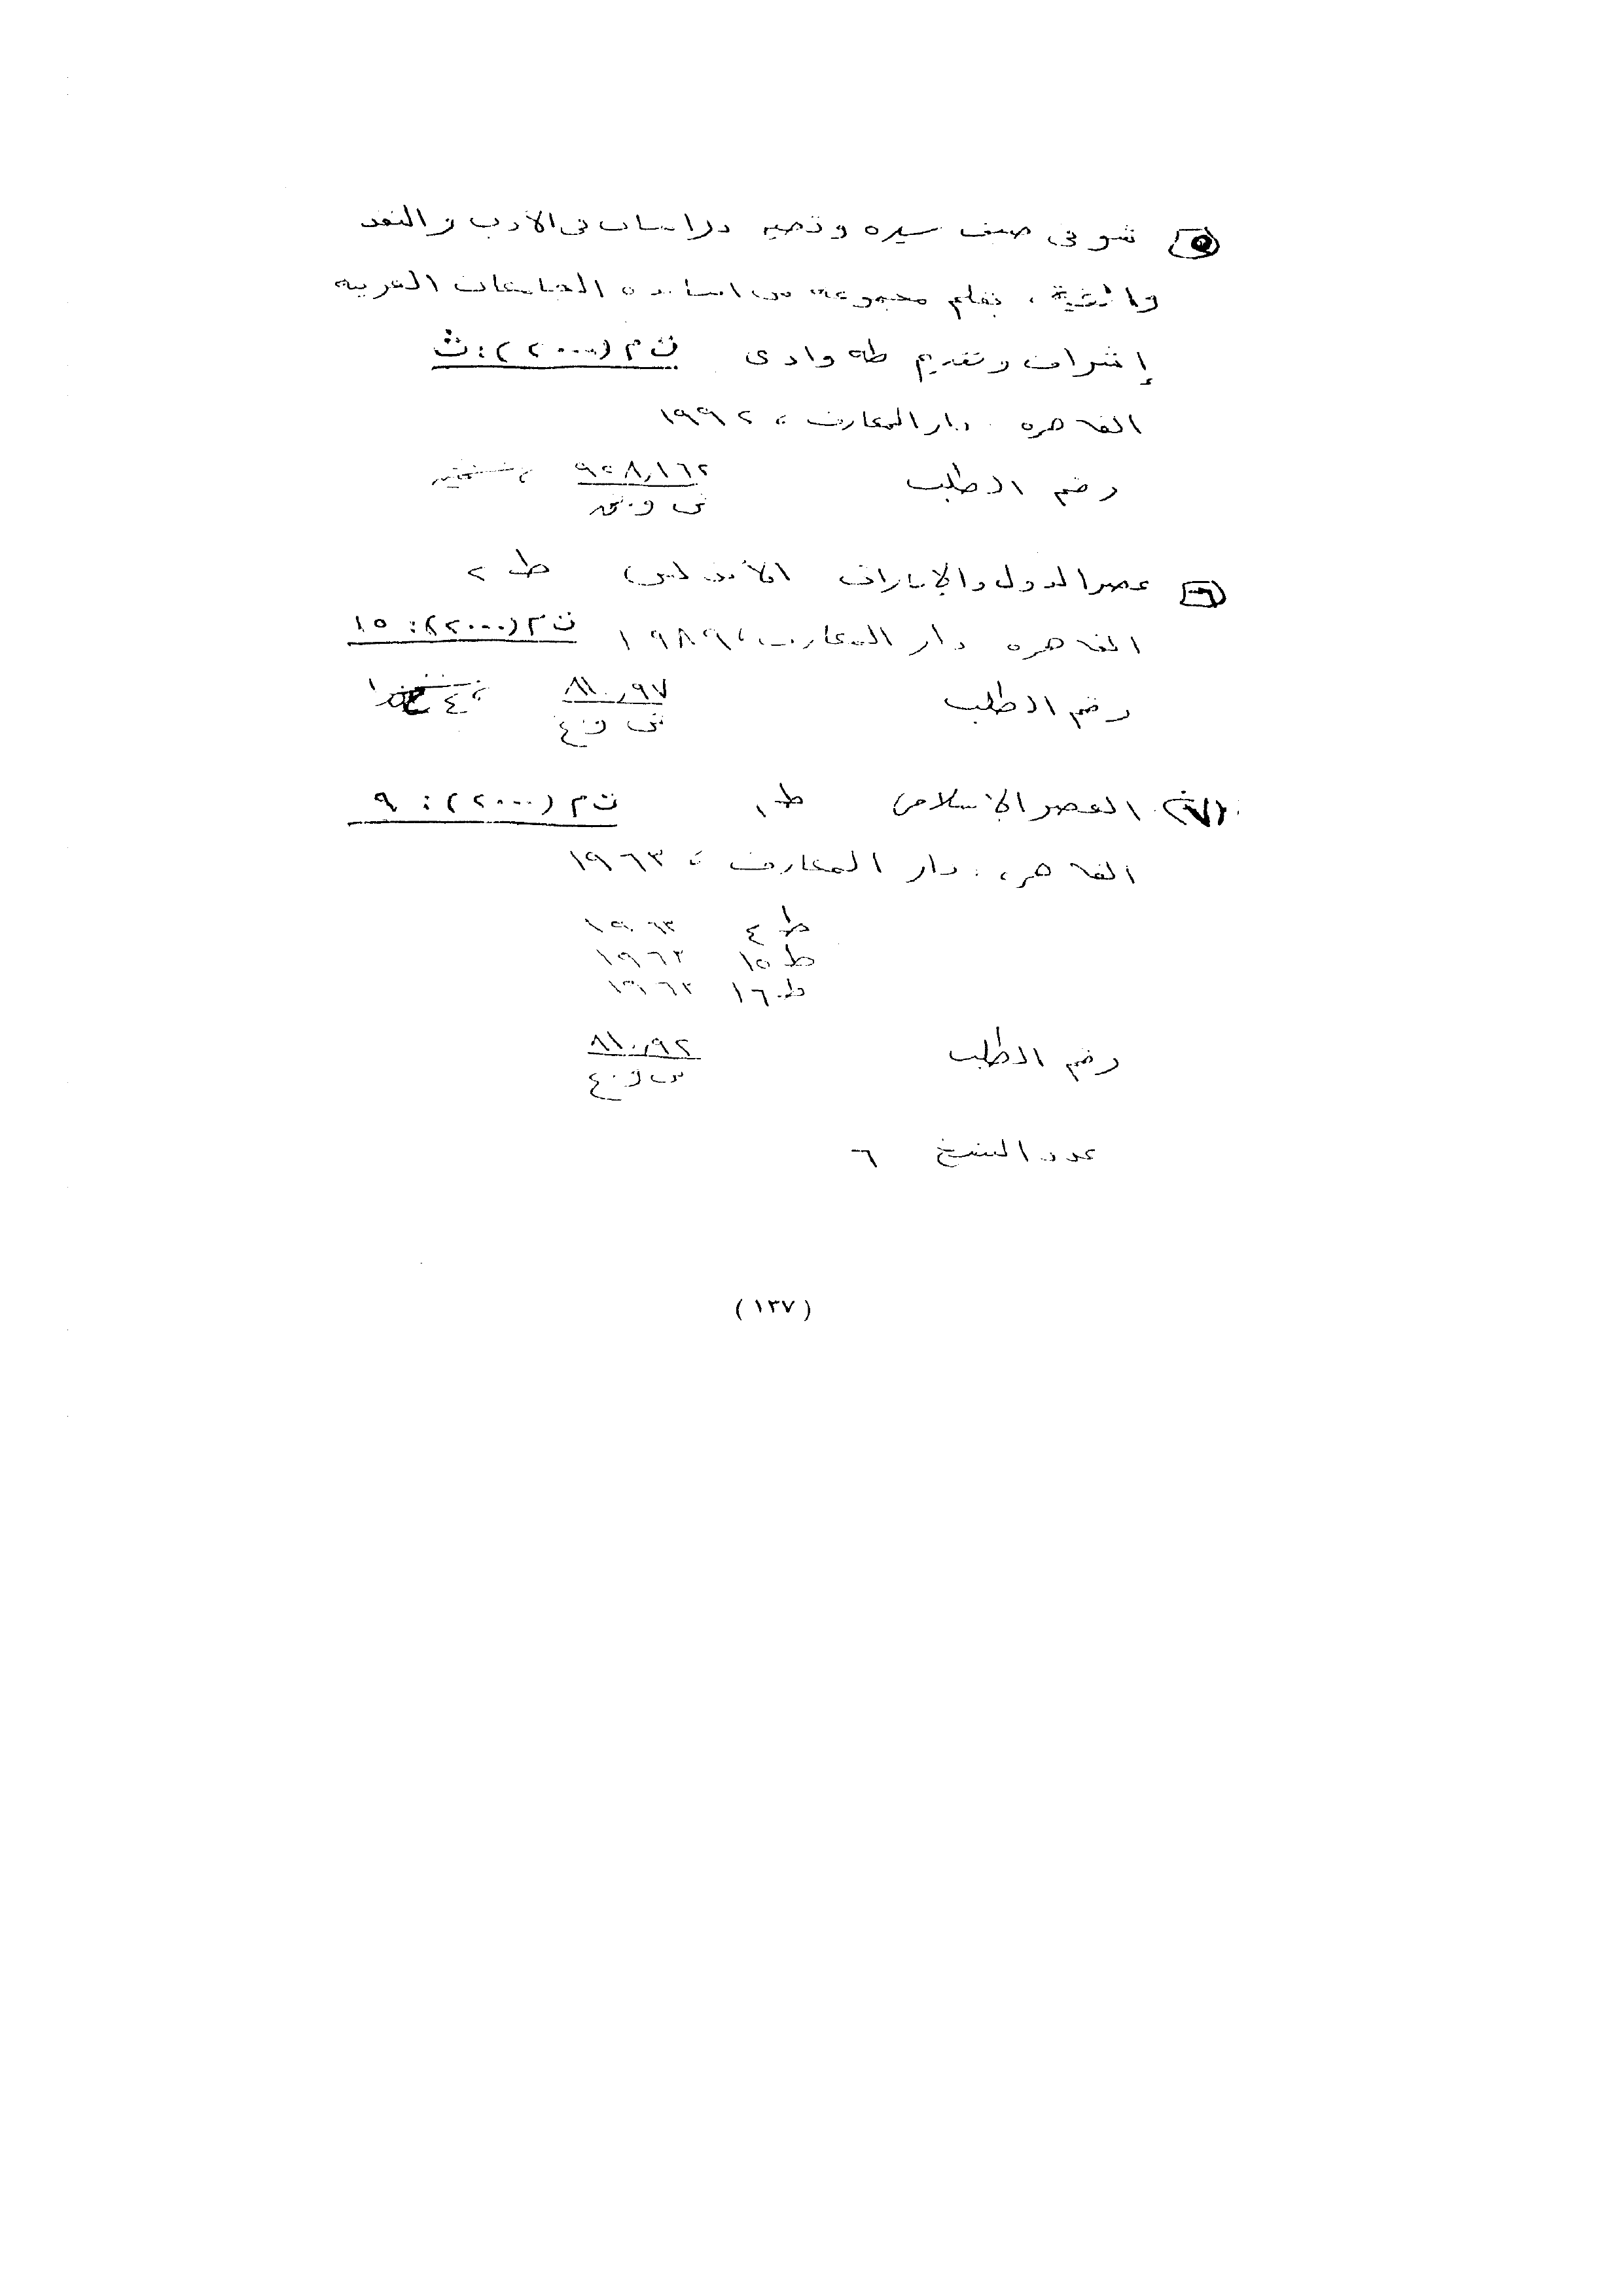 ٥ شوقى ضيف سيره وتحيه دراسات فى الأدب والنقد
، بقلم مجموعة من اساتذه الجامعات العربيه
إشراف وتقديم طه وادى ت م (٢٠٠٠): ث
القاهره دار المعارف ، ١٩٩٢
رقم الطلب ٩٢٨,١٦٢
ش و.ض
٦ عصر الدول والإمارات الأندلس ط ٢
القاهره دار المعارف، ١٩٨٩ ت م (٢٠٠٠): ١٥
رقم الطلب ٨١٠,٩٧
ش و.ع
(٧) العصر الإسلامى ط١ ت م (٢٠٠٠): ٩
القاهره، دار المعارف ، ١٩٦٣
ط ٤ ١٩٦٣
ط ١٥ ١٩٦٣
ط ١٦ ١٩٦٣
رقم الطلب ٨١٠,٩٢
ش و.ع
عدد النسخ ٦
(١٣٧)